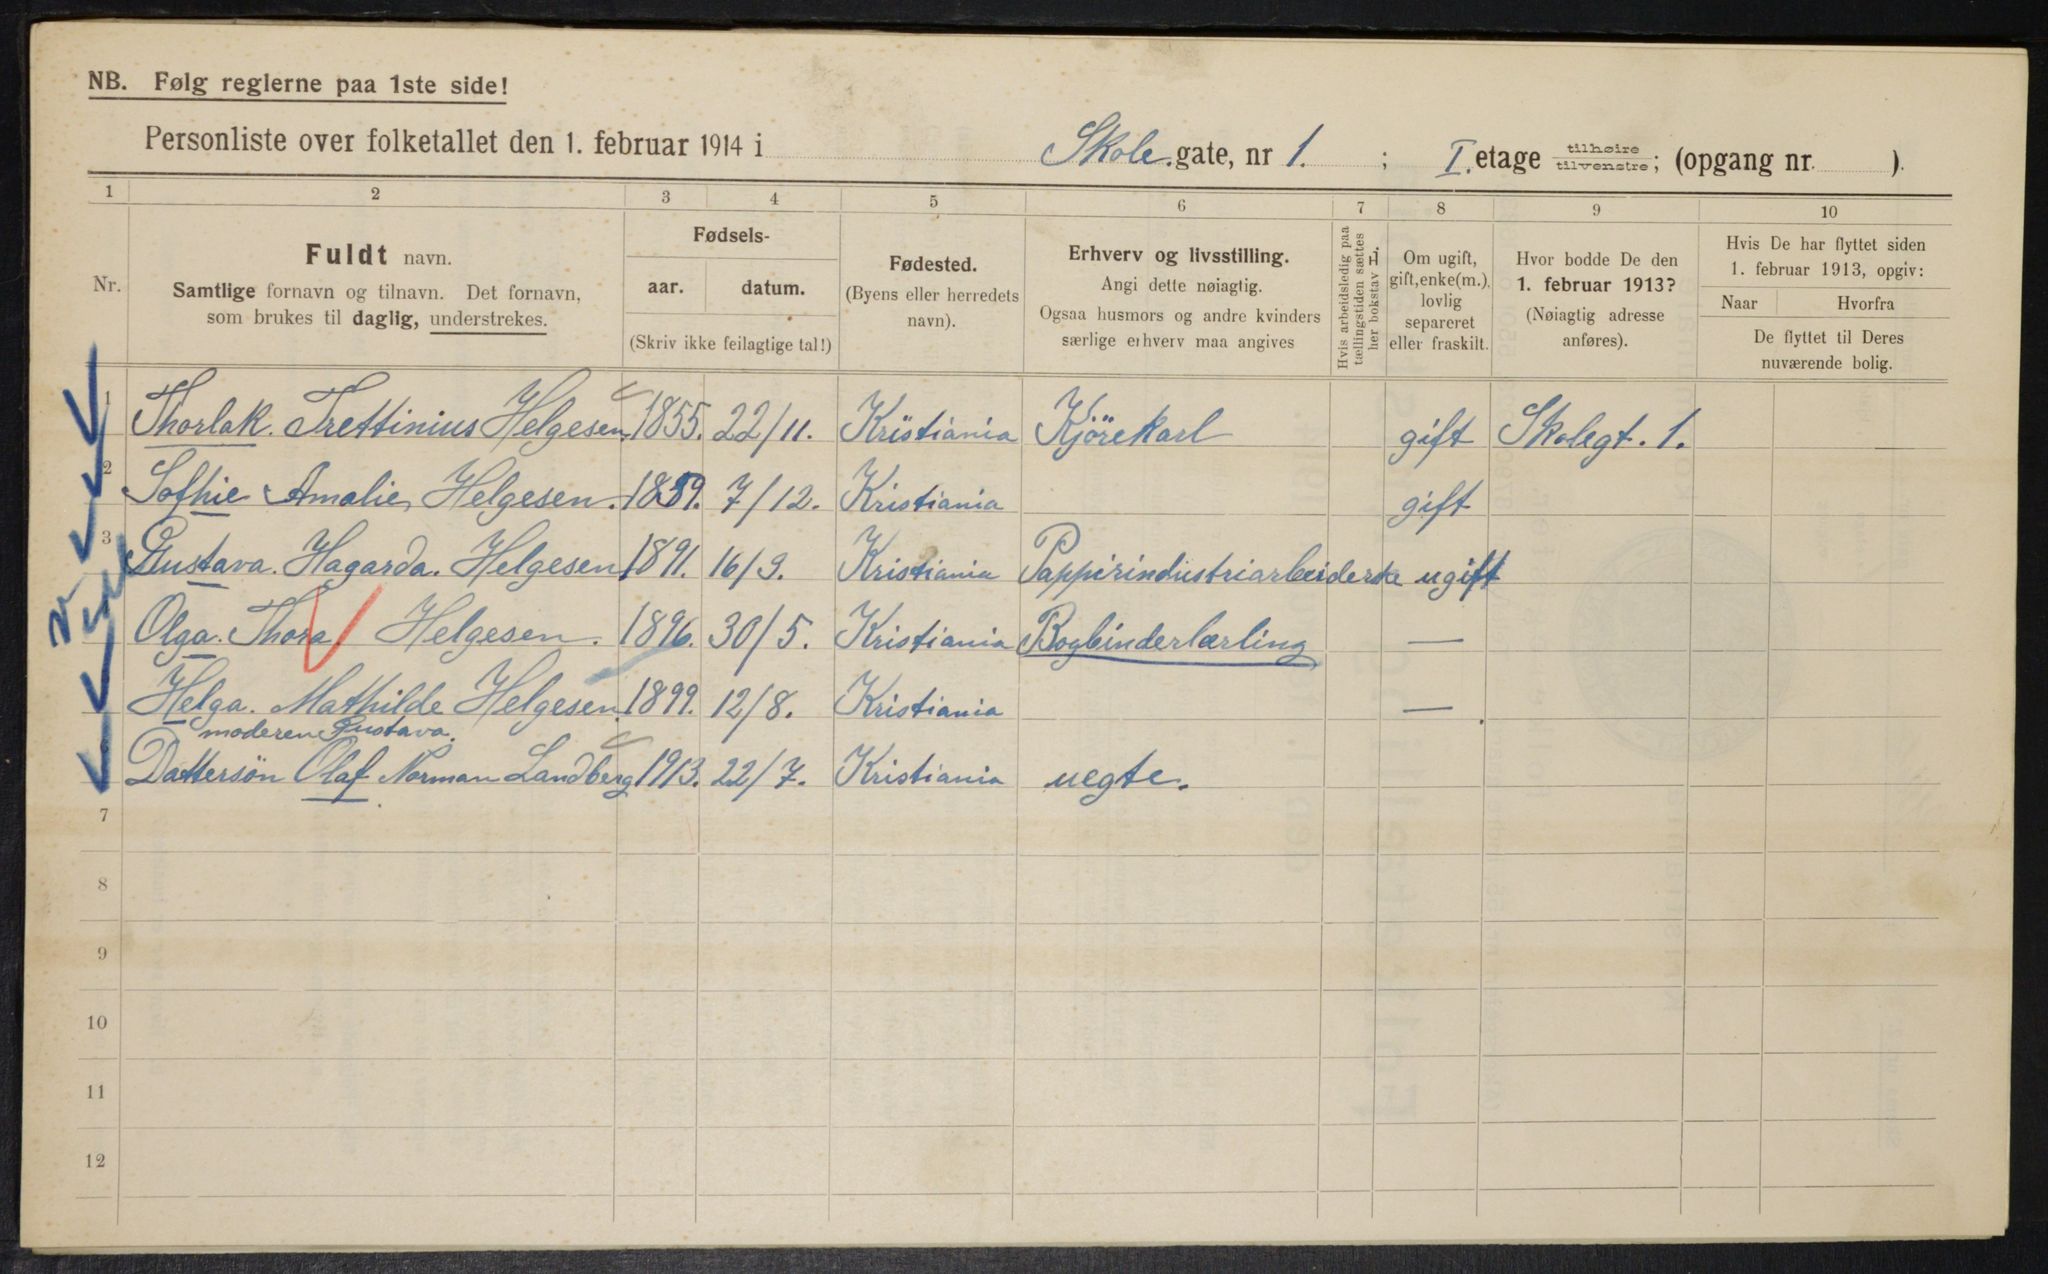 NB. Følg reglerne paa 1ste side!
Personliste over folketallet den 1. februar 1914 i Skole gate, nr 1. ; I. etage tilhøire tilvenstre; (opgang nr. ).
1 2 3 4 5 6 7 8 9 10
Nr.
Fuldt navn.
Samtlige fornavn og tilnavn. Det fornavn,
som brukes til daglig, understrekes.
Fødsels-
aar. datum.
(Skriv ikke feilagtige tal!)
Fødested.
(Byens eller herredets
navn).
Erhverv og livsstilling.
Angi dette nøiagtig.
Ogsaa husmors og andre kvinders
særlige erhverv maa angives
Hvis arbeidsledig paa
tællingstiden sættes
her bokstav L.
Om ugift,
gift, enke(m.),
lovlig
separeret
eller fraskilt.
Hvor bodde De den
1. februar 1913?
(Nøiagtig adresse
anføres).
Hvis De har flyttet siden
1. februar 1913, opgiv:
Naar Hvorfra
De flyttet til Deres
nuværende bolig.
1 Thorlak. Trettinius Helgesen. 1855. 22/11. Kristiania Kjörekarl gift Skolegt. 1.
2 Sofhie Amalie Helgesen. 1859. 7/12. Kristiania gift
3 Gustava. Hagarda. Helgesen 1891. 16/9. Kristiania Pappirindustriarbeiderske ugift
Olga. Thora Helgesen. 1896. 30/5. Kristiania Bogbinderlærling —
Helga. Mathilde Helgesen. 1899. 12/8. Kristiania — .
moderen Gustava.
Dattersön Olaf Norman Landberg 1913. 22/7. Kristiania uegte.
7
8
9
10
11
12